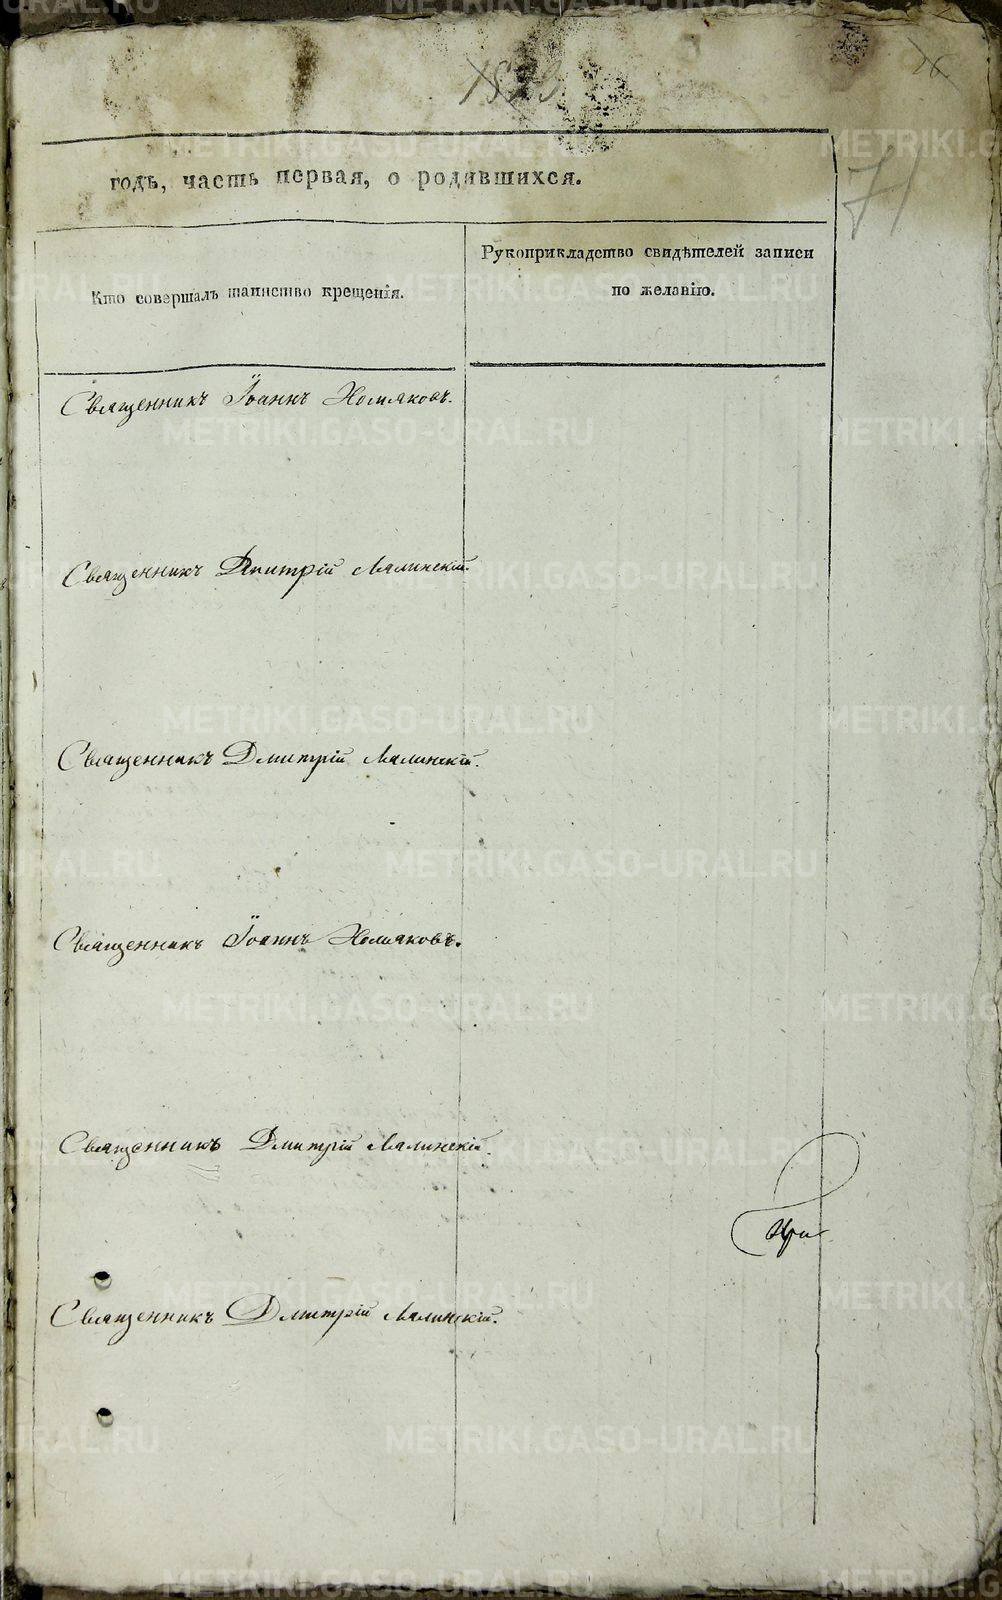 METRIKI.GASO-URAL.RU
26
71
годъ, часть первая, о родившихся.
Кто совершалъ таинство крещенія.
Рукоприкладство свидѣтелей записи
по желанію.
Священникъ Іоаннъ Хомяковъ.
Священникъ Дмитрій Лялинскій.
Священникъ Дмитрій Лялинскій.
Священникъ Іоаннъ Хомяковъ.
Священникъ Дмитрій Лялинскій.
Священникъ Дмитрій Лялинскій.